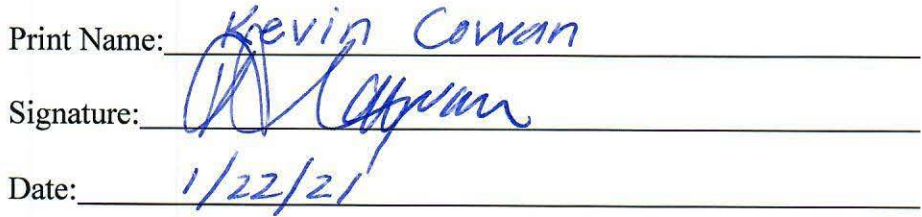 Print Name: Kevin Cowan
Signature:
Date: 1/22/21